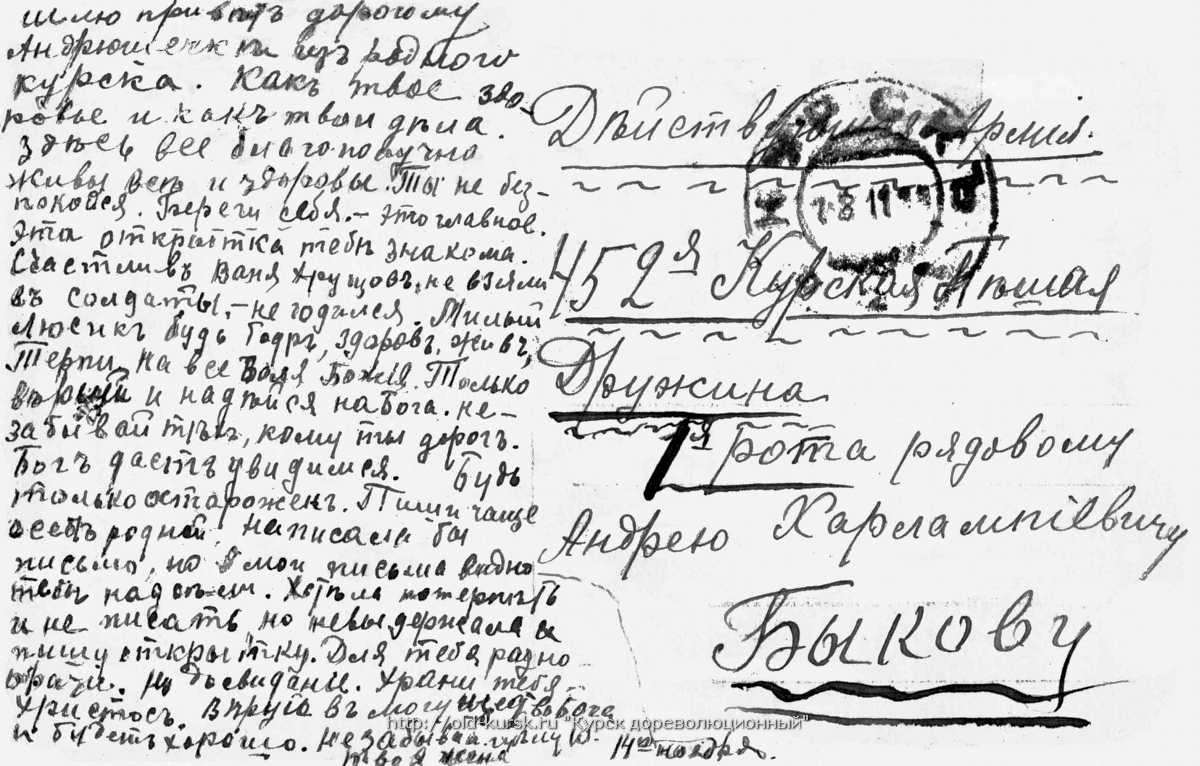 шлю привѣтъ дорогому
Андрюшечкѣ изъ родного
курска. Какъ твое здо-
ровье и какъ твои дѣла.
здѣсь все благополучна
живы всѣ и здоровы. Ты не без-
покойся. Береги себя. – это главное.
Эта открытка тебѣ знакома.
Счастливъ Ваня Хрущовъ, не взяли
въ солдаты, – не годался. Милый
люсикъ будь бодръ, здоровъ, живъ,
Терпи, на все Воля Божія. Только
вѣруй и надѣйся на Бога. не-
забывай тѣхъ, кому ты дорогъ.
Богъ дастъ увидимся. Будь
только остароженъ. Пиши чаще
родной, написала бы
письмо, но мои письма видно
тебѣ надоѣли. Хотѣла потерпѣть
и не писать, но невыдержала и
пишу открытку. Для тебя разно
. Но досвиданье. Храни тебя
Христосъ. въ могущество Бога
и будетъ хорошо. Незабывай
твоя жена
14го ноября.
Дѣйствующая Армія.
КУРСКЪ
28 11
452я Курская Пѣшая
Дружина
1я рота рядовому
Андрею Харлампіевичу
Быкову
http://old-kursk.ru "Курск дореволюционный"